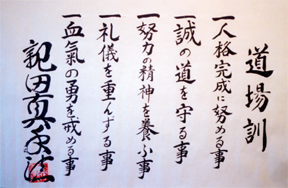 道場訓
一人格完成に努める事
一誠の道を守る事
一努力の精神を養ふ事
一礼儀を重んずる事
一血氣の勇を戒める事